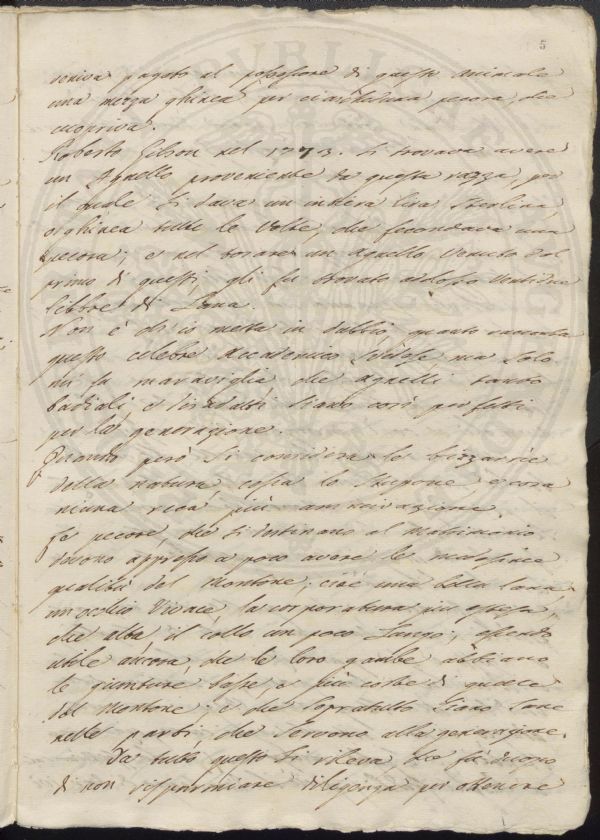 5
veniva pagato al possessore di questo animale
una mezza ghinea per ciascheduna pecora, che
copriva.
Roberto Gilson nel 1773. si trovava avere
un Agnello proveniente da questa razza, per
il quale si dava un intera lira Sterlina,
o ghinea tutte le volte, che fecondava una
pecora; e nel tosare un Agnello venuto dal
primo di questi gli fu trovato addosso
libbre di Lana.
Non è ch'io metta in dubbio quanto racconta
questo celebre Accademico Svedese, ma solo
mi fa maraviglia che Agnelli tanto
badiali, e siano così perfetti
per la generazione.
Quando però si considera le bizzarrie
della natura, cessa lo stupore, e cosa
niuna reca più ammirazione.
Le pecore, che si destinano al matrimonio
devono appresso a poco avere le medesime
qualità del Montone; cioè una bella lana
un occhio vivace, la corporatura più grossa,
che alta il collo un poco lungo; essendo
utile ancora, che le loro gambe abbiano
le giunture basse, e più corte di quelle
del Montone; e che sopratutto siano sane
nelle parti, che servono alla generazione.
Da tutto questo si rileva che fu d'uopo
di non risparmiare diligenza per ottenere